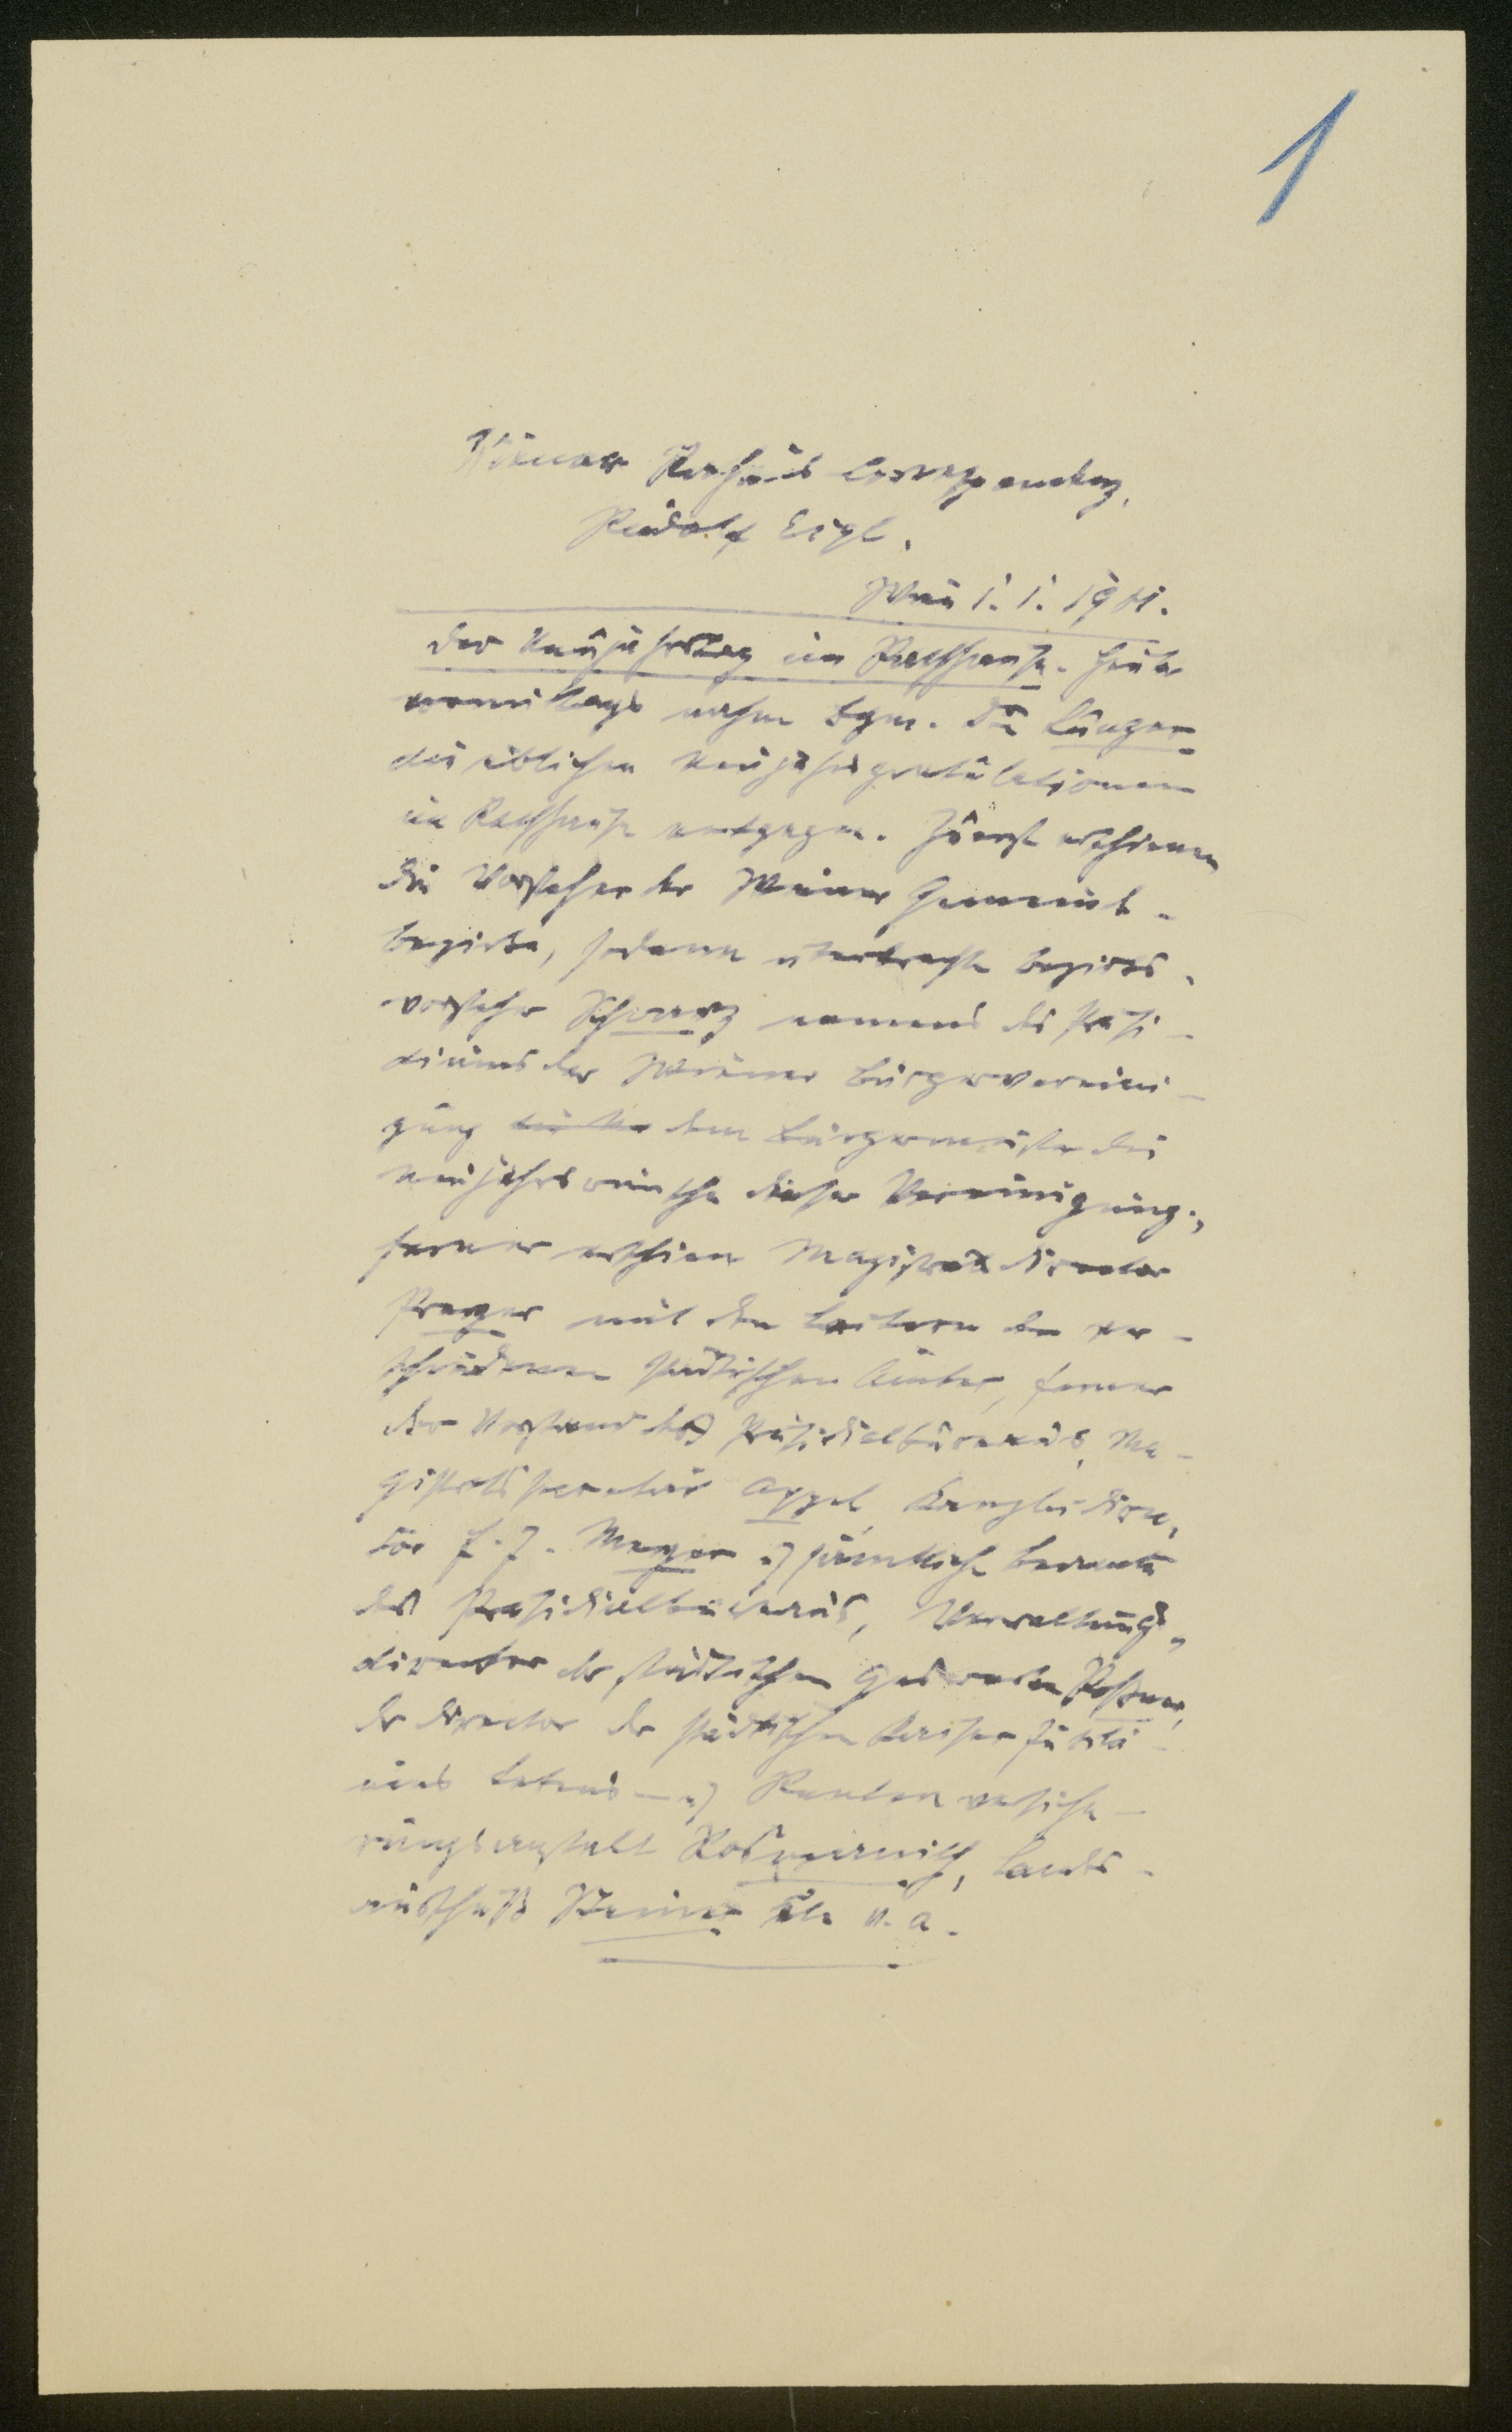 1
Wiener Rathaus Correspondenz.
Rudolf Eigl.
Wien 1. 1. 1901.
Der Neujahrstag im Rathhause. Heute
vormittags nahm Bgm. Dr. Lueger
die üblichen Neujahrsgratulationen
im Rathhause entgegen. Zuerst erschienen
die Vorsteher der Wiener Gemeinde-
bezirke, sodann überbrachte Bezirks-
vorsteher Schwarz namens des Präsi-
diums der Wiener Bürgervereini-
gung dem Bürgermeister die
Neujahrswünsche dieser Vereinigung,
ferner erschien Magistratsdirector
Preyer mit den Leitern der ver-
schiedenen städtischen Ämter, ferner
der Vorstand des Präsidialbureaus, Ma-
gistratssecretär Appel, Kanzleidirec-
tor Meyer u. sämtliche Beamte
des Präsidialbureaus, Verwaltungs-
director der städtischen Gaswerke
der Director der städtischen Kaiser Jubilä-
ums Lebens- u. Rentenversiche-
rungsanstalt Landes-
ausschuß Steiner u. a.